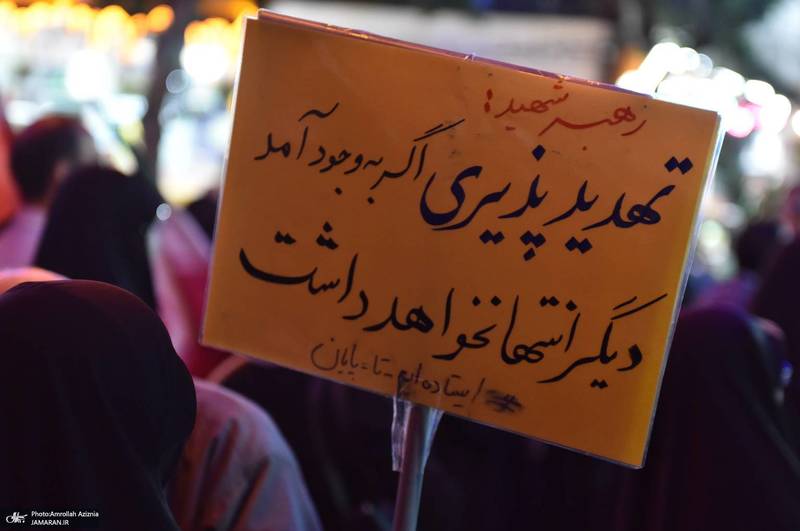 رهبر شهید:
تهدید پذیری اگر به وجود آمد
دیگر انتها نخواهد داشت
#ایستاده‌ایم-تا-پایان
Photo:Amrollah Aziznia
JAMARAN.IR